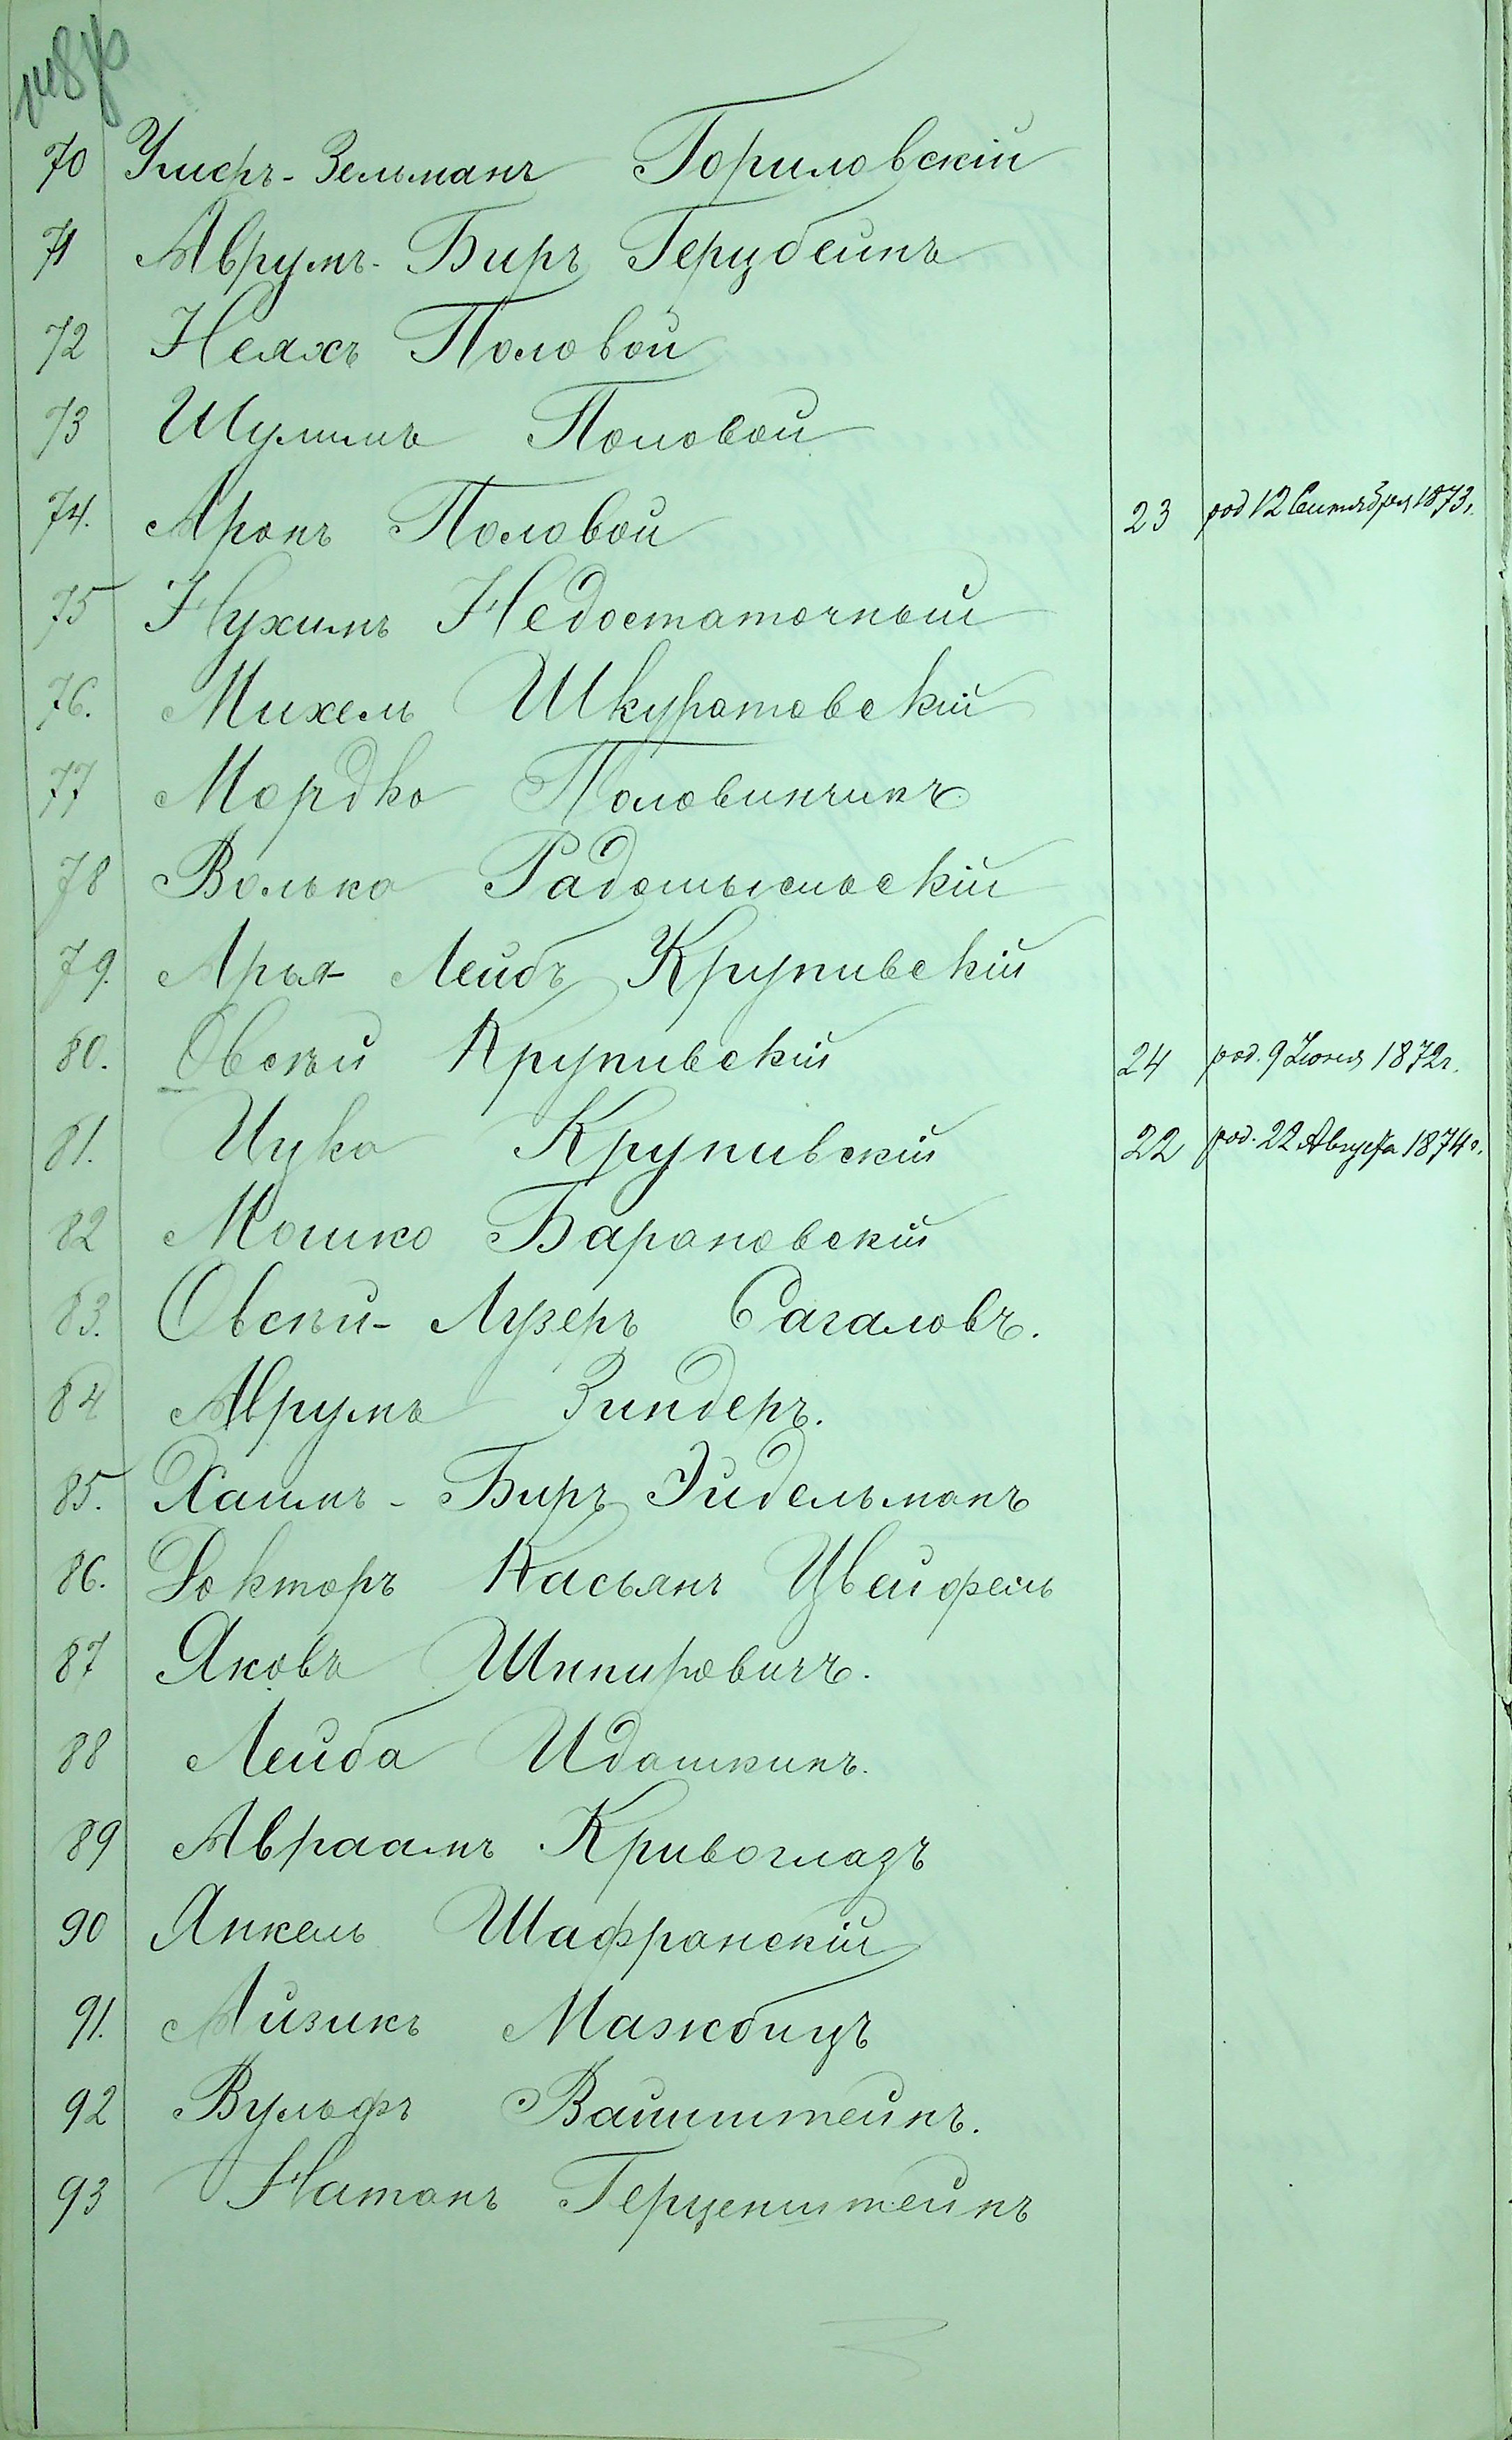 70 Ушеръ-Зельманъ Гориловскій
71 Аврумъ-Биръ Герцбейнъ
72 Неяхъ Половой
73 Шулимъ Половой
74. Аронъ Половой 23 род 12 Сентября 1873 г.
75 Нухимъ Недостаточный
76. Михель Шкуратовскій
77 Мордко Половинчикъ
78 Волько Радомысльскій
79. Арья-Лейбъ Крупивскій
80. Овсѣй Крупивскій 24 род. 9 Июня 1872 г.
81. Ицко Крупивскій 22 род. 22 Августа 1874 г.
82 Мошко Барановскій
83. Овсѣй-Лузеръ Сагаловъ.
84 Аврумъ Зиндеръ.
85. Хаимъ-Биръ Эйдельманъ
86. Докторъ Касьянъ Цвейфель
87 Яковъ Шпировичъ.
88 Лейба Идашкинъ.
89 Авраамъ Кривоглазъ
90 Янкель Шафранскій
91. Айзикъ Мажбицъ
92 Вульфъ Вайнштейнъ.
93 Натанъ Герценштейнъ